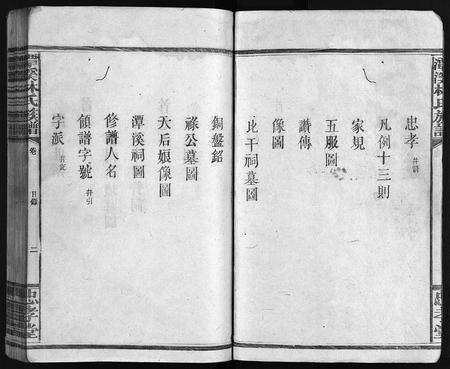 潭溪林氏族譜
忠孝堂
忠孝 并訓
凡例十三則
家規
五服圖
讚傳
像圖
比干祠墓圖
銅盤銘
祿公墓圖
天后娘像圖
潭溪祠圖
修譜人名
領譜字號 并引
字派
潭溪林氏族譜
卷
目錄
二
忠孝堂